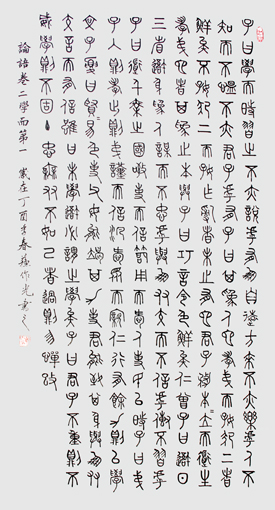 子曰學而時習之不亦說乎有朋自遠方來不亦樂乎人不
知而不慍不亦君子乎有子曰其為人也孝弟而好犯上者
鮮矣不好犯上而好作亂者未之有也君子務本本立而道生
孝弟也者其為仁之本與子曰巧言令色鮮矣仁曾子曰吾日
三省吾身為人謀而不忠乎與朋友交而不信乎傳不習乎
子曰道千乘之國敬事而信節用而愛人使民以時子曰弟
子入則孝出則弟謹而信汎愛眾而親仁行有餘力則以學
文子夏曰賢賢易色事父母能竭其力事君能致其身與朋友
交言而有信雖曰未學吾必謂之學矣子曰君子不重則不
威學則不固主忠信無友不如己者過則勿憚改
論語卷二學而第一 歲在丁酉春